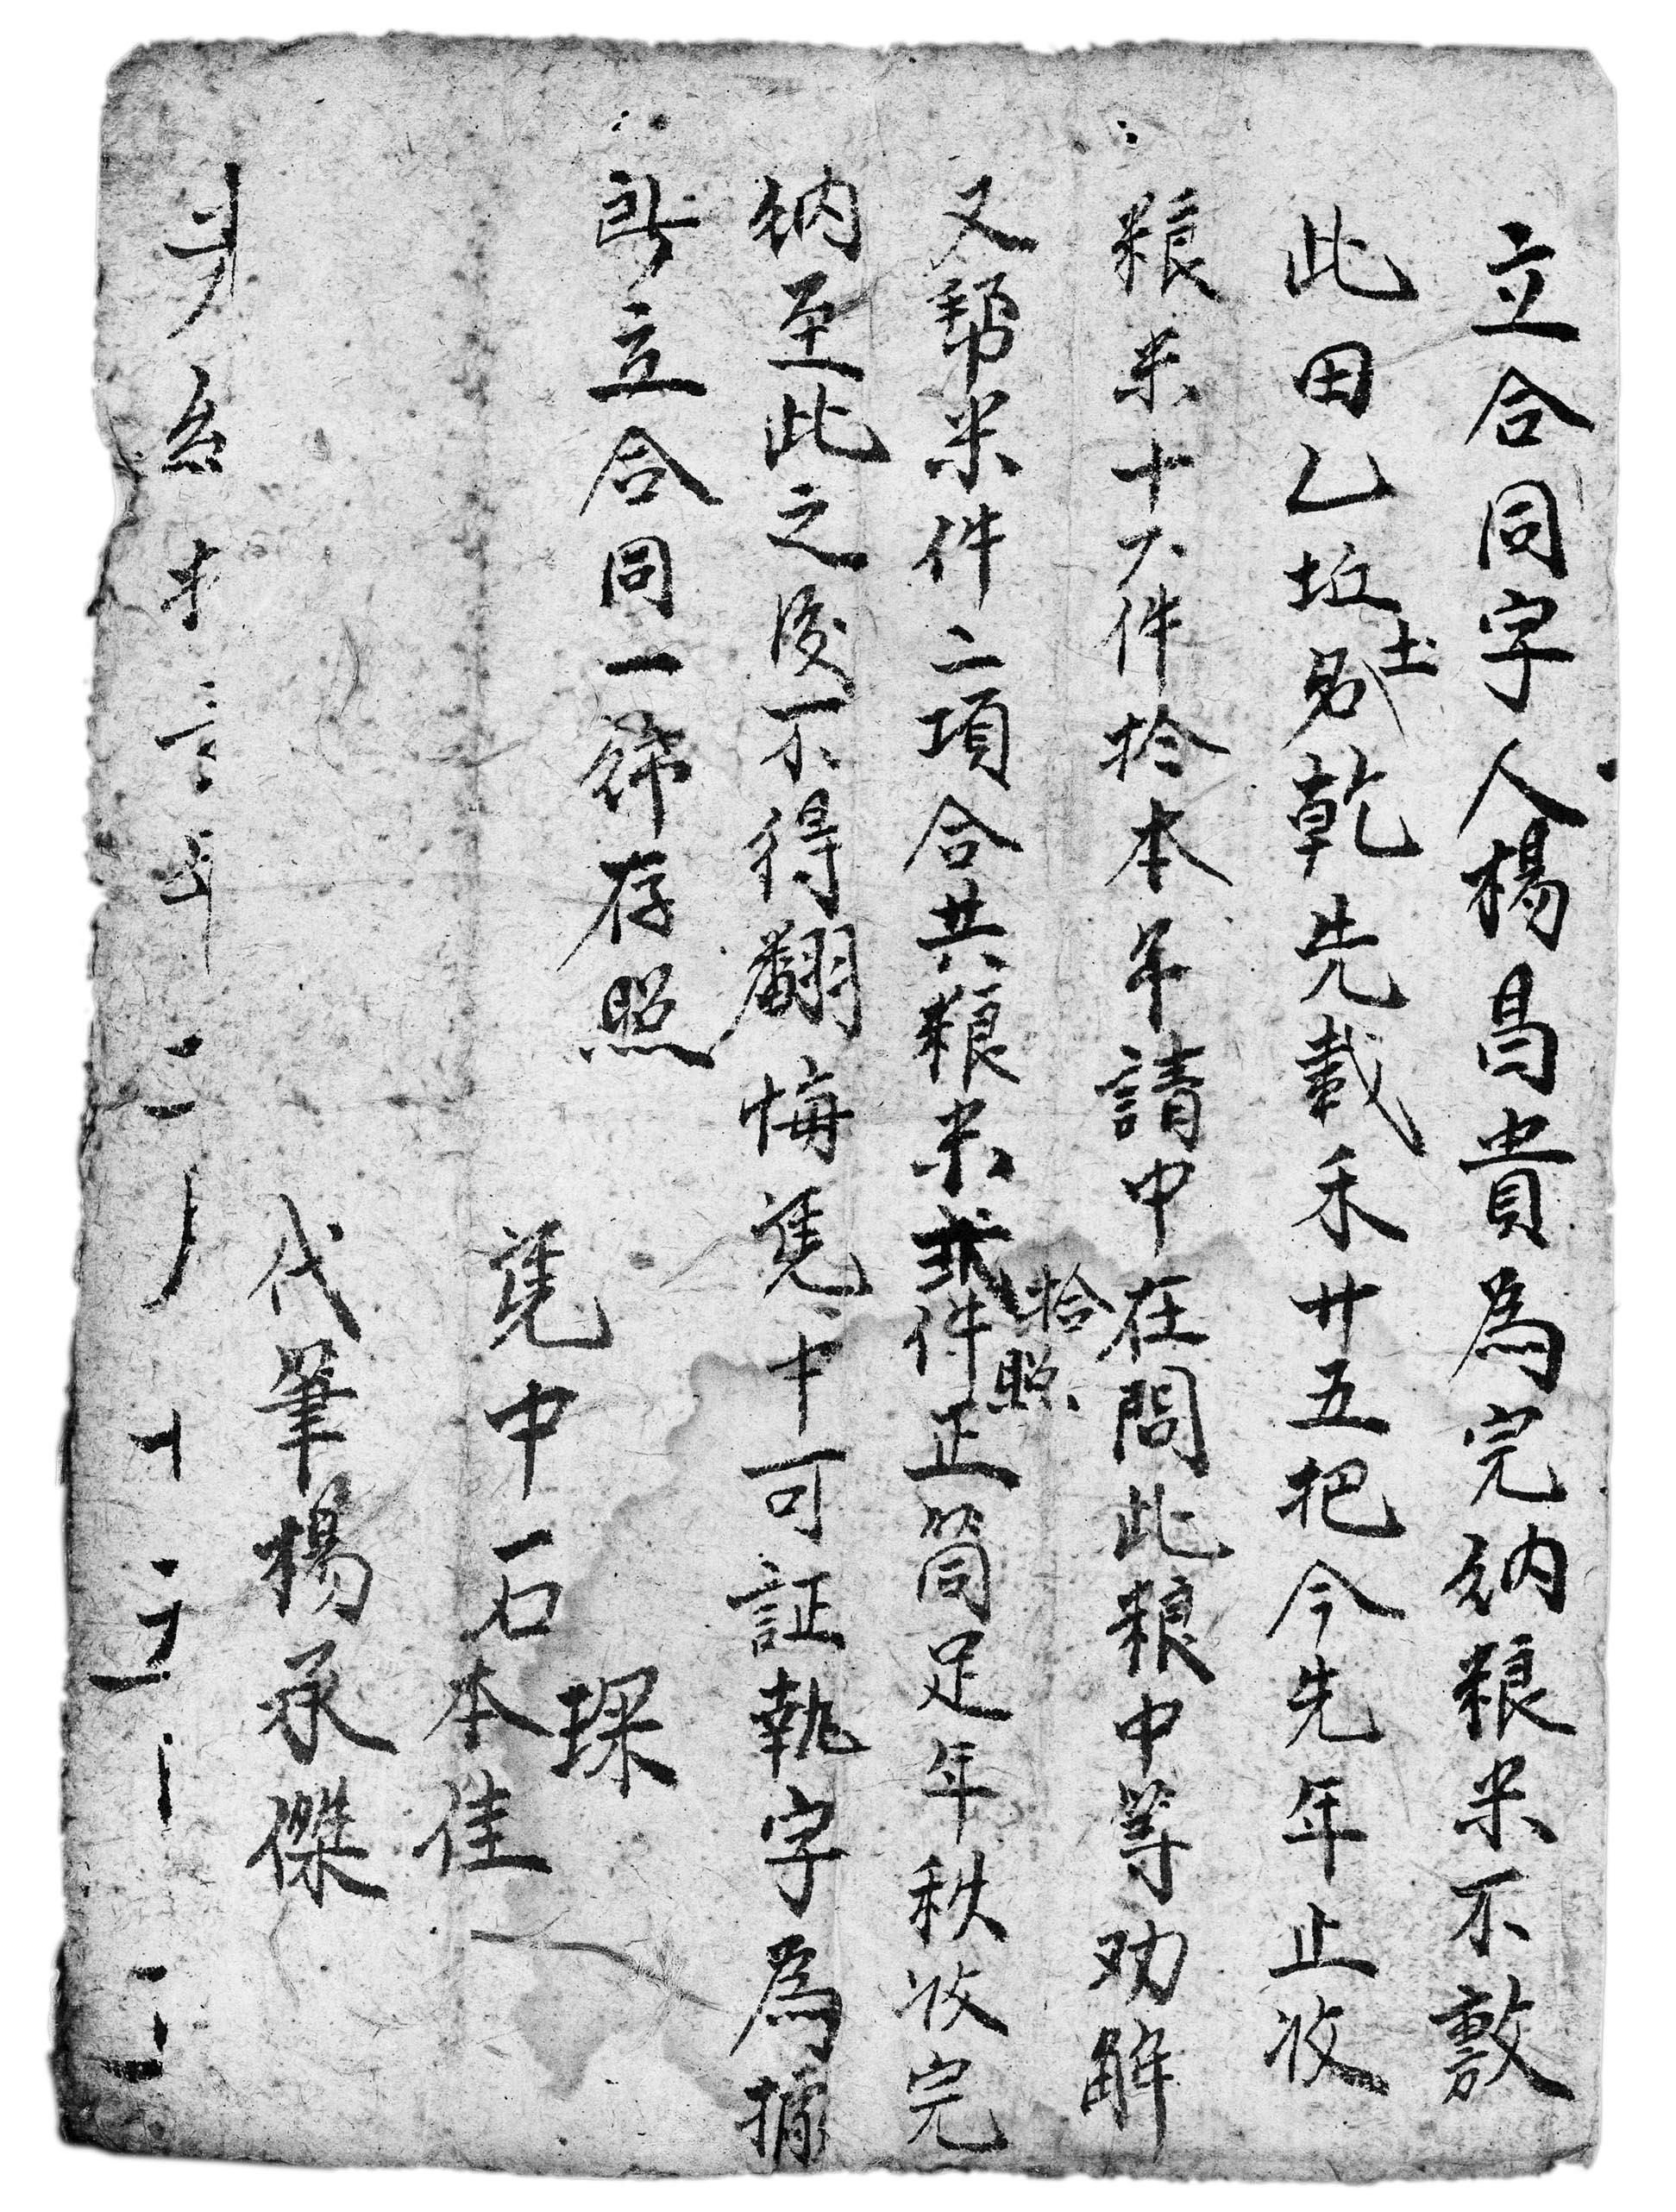 立合同字人楊昌貴為完納粮米不敷
此田乙坵土名乾先載禾廿五把今先年止收
粮米十六件於本年請中在問此粮中等劝觧
又帮米件二項合共粮米拾弍件照正筒足年秋收完
納至此之後不得翻悔凴中可証執字為據
所立合同一紙存照
凴中石本
琛
佳
代筆楊承傑
二月十